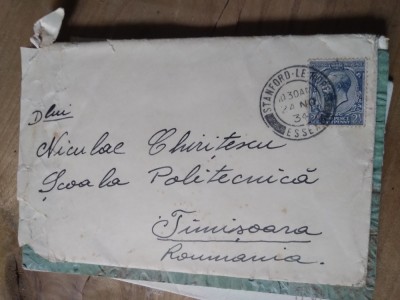 STANFORD-LE-HOPE
10.30AM
24 NO
34
ESSEX
Dlui
Niculae Chirițescu
Școala Politecnică
Timișoara
Roumania.